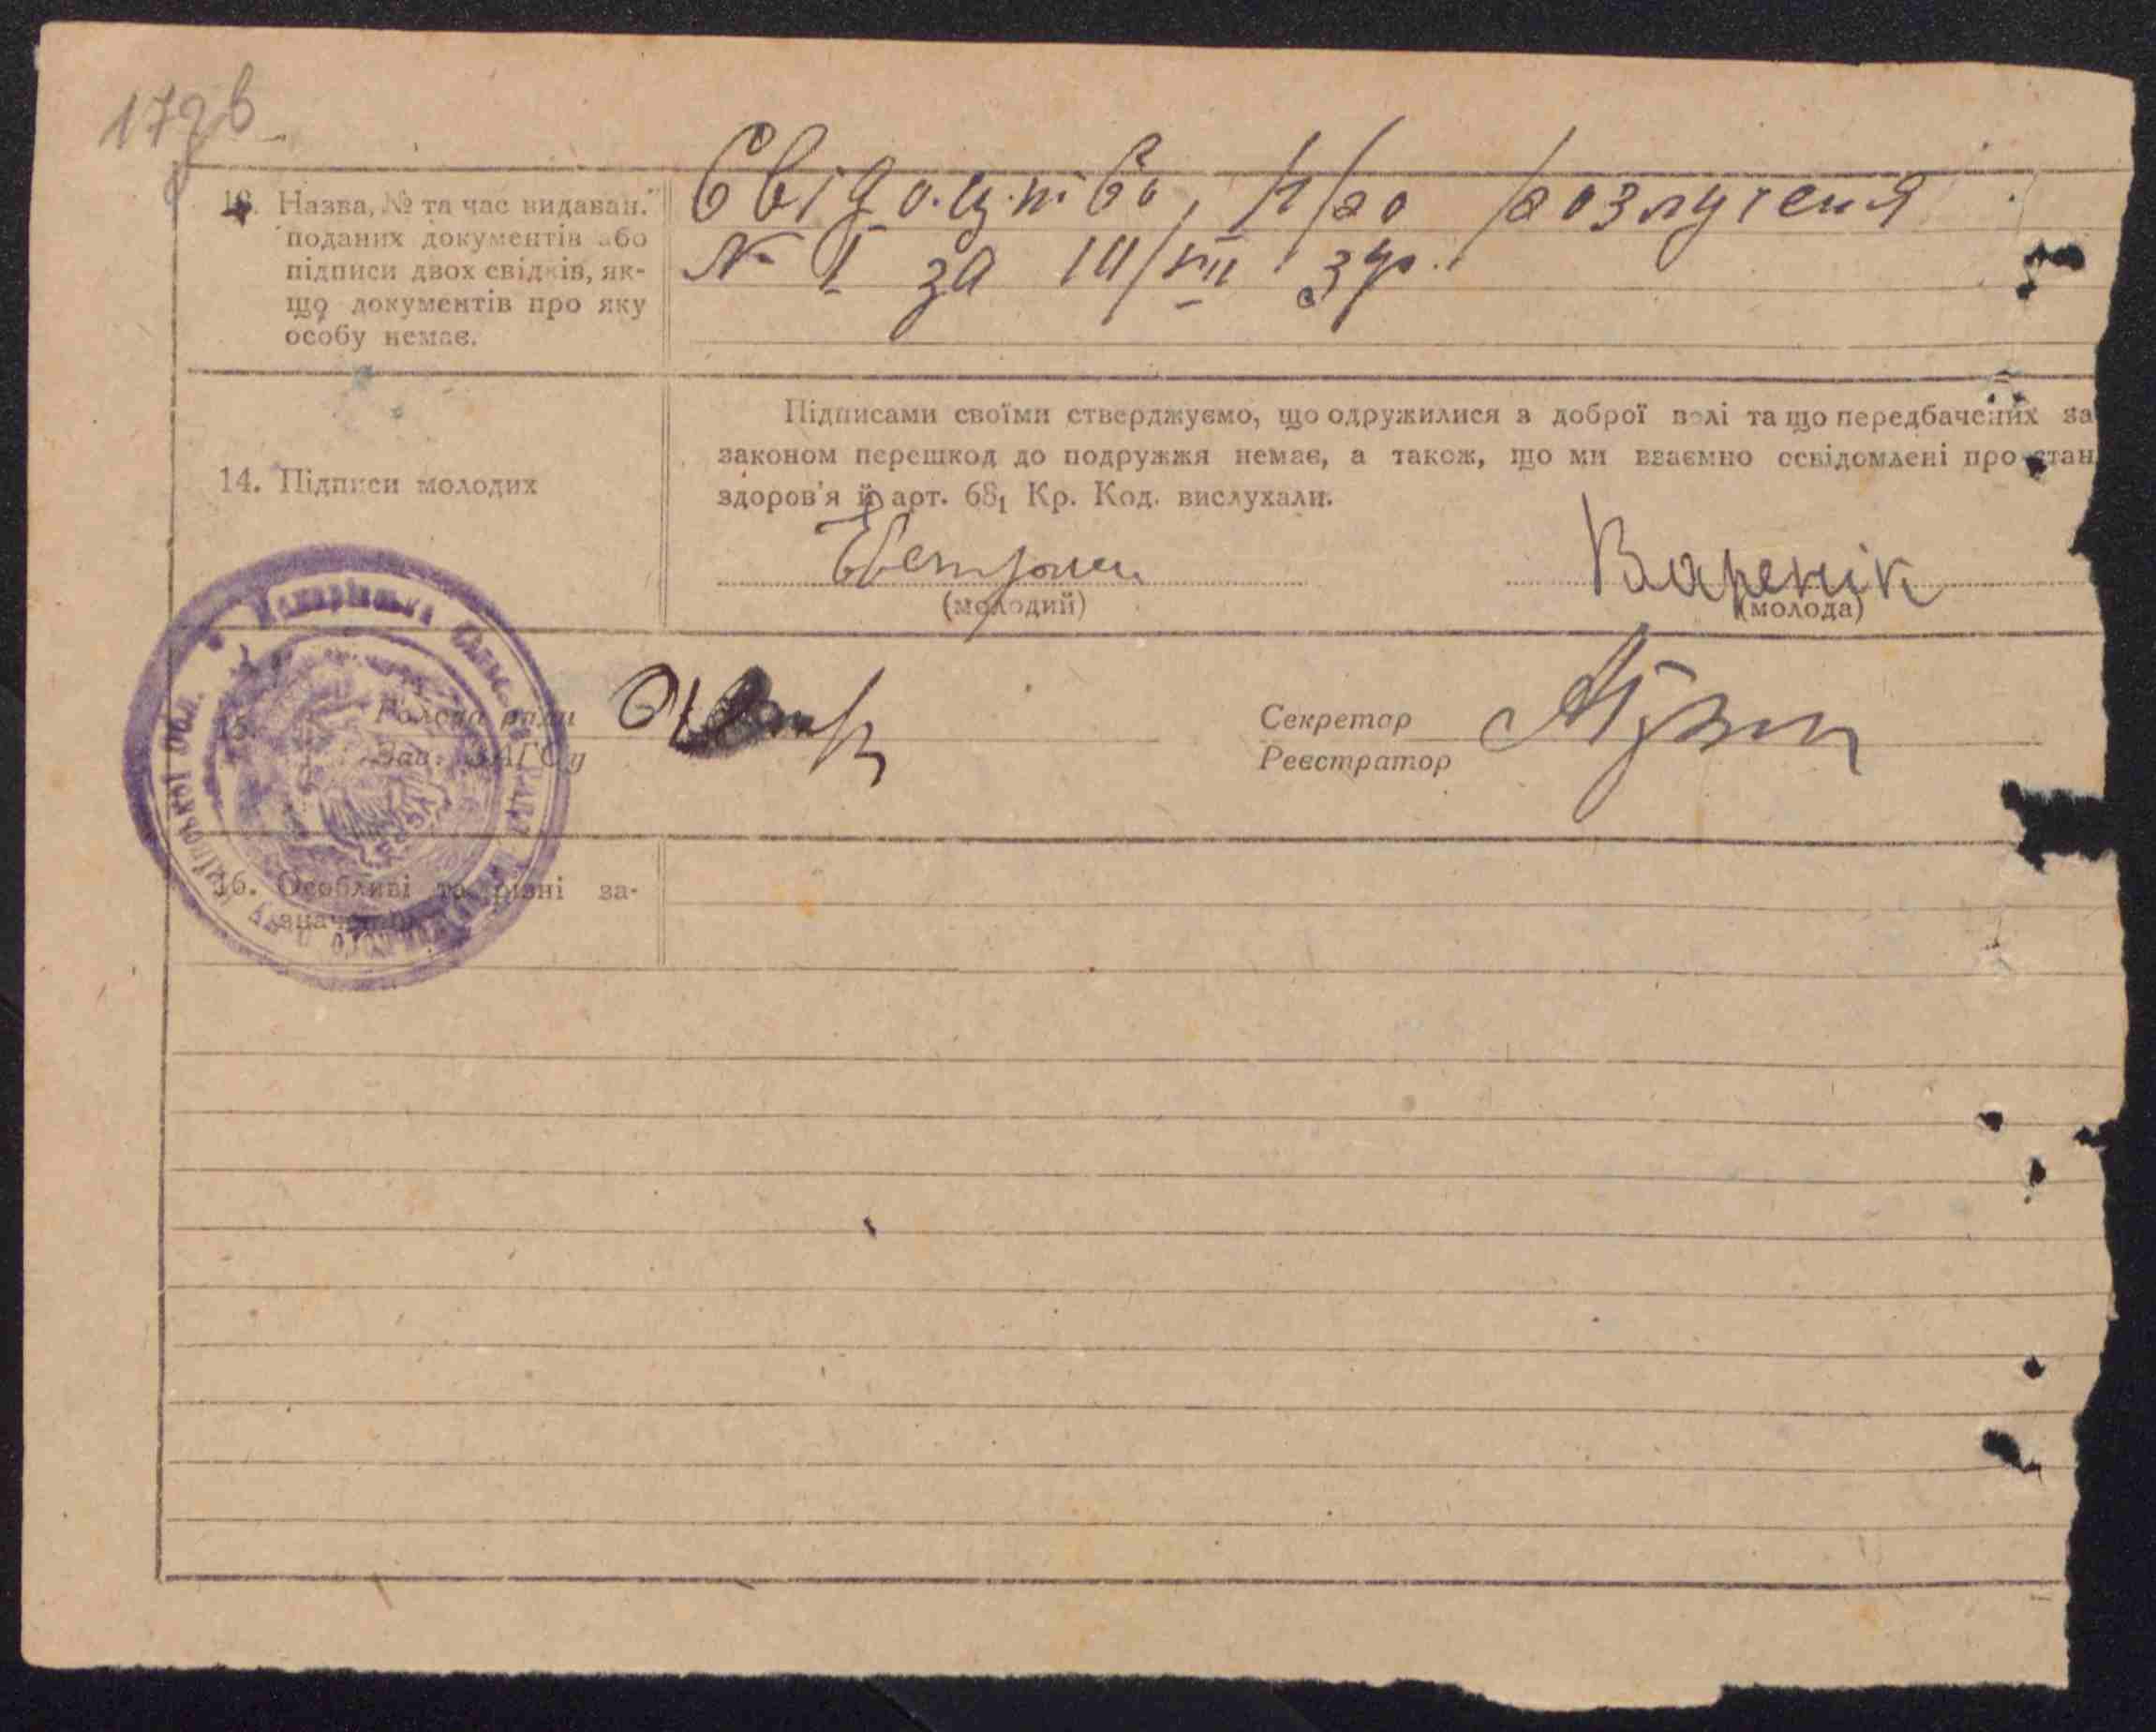 173в
13. Назва, № та час видаван.
поданих документів або
підписи двох свідків, як-
що документів про яку
особу немає.
Свідоцтво, про розлученя
№ 1 за
14. Підписи молодих
Підписами своїми стверджуємо, що одружилися з доброї волі та що передбачених за
законом перешкод до подружжя немає, а також, що ми взаємно освідомлені про стан
здоров'я й арт. 68₁ Кр. Код. вислухали.
Варенік
(молодий)
(молода)
15. Голова ради
Зав. ЗАГСу
Секретар
Реєстратор
16. Особливі та різні за-
значення